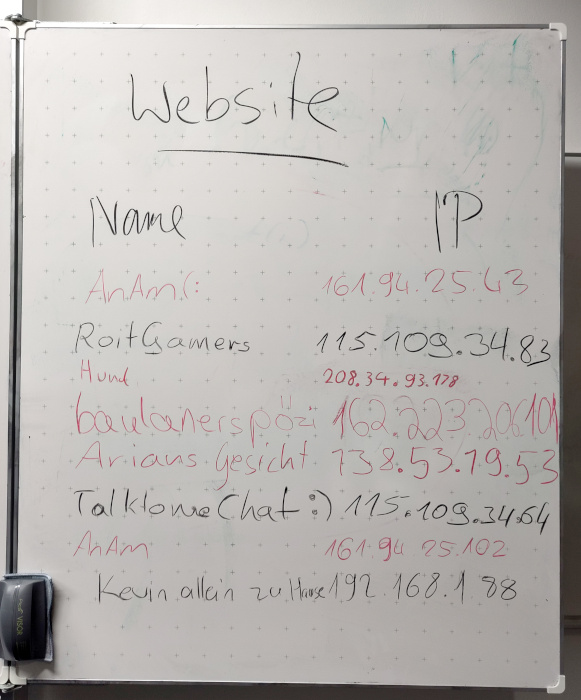 Website
Name IP
AnAm(: 161.94.25.43
RoitGamers 115.109.34.83
Hund 208.34.93.178
baulanerspözi 162.223.206.101
Arians Gesicht 138.53.19.53
TalktomeChat:) 115.109.34.64
AnAm 161.94 25.102
Kevin allein zu Hause 192.168.1.88